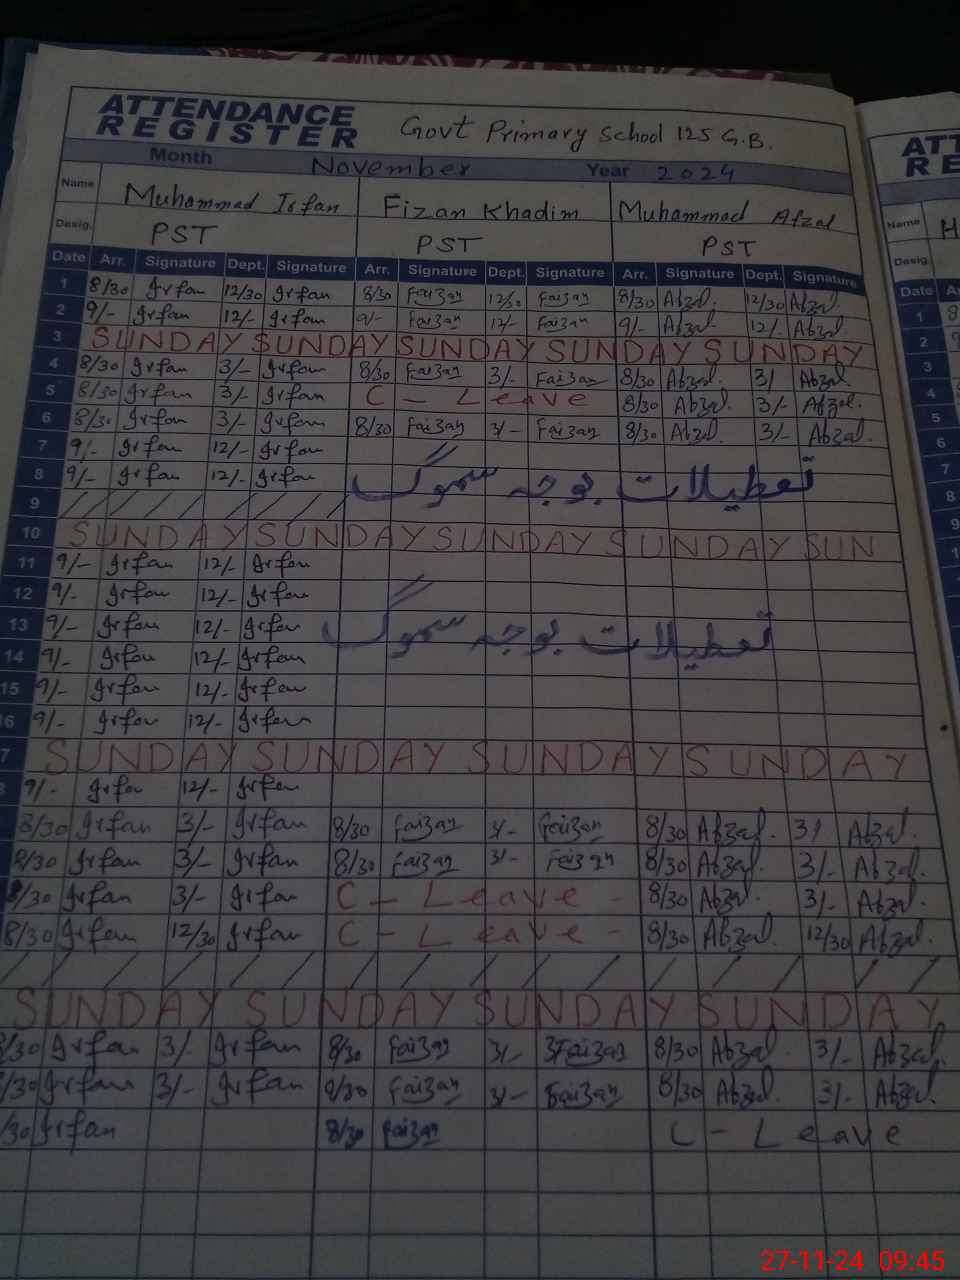 ATTENDANCE REGISTER Govt Primary School 125 G.B. ATT
RE
Month November Year 2024
Name Muhammad Irfan Fizan Khadim Muhammad Afzal Name H
Desig. PST PST PST Desig.
Date Arr. Signature Dept. Signature Arr. Signature Dept. Signature Arr. Signature Dept. Signature Date
1 8/30 Irfan 12/30 Irfan 8/30 Faizan 12/30 Faizan 8/30 Afzal. 12/30 Afzal. 1
2 9/- Irfan 12/- Irfan 9/- Faizan 12/- Faizan 9/- Afzal. 12/- Afzal. 2
3 SUNDAY SUNDAY SUNDAY SUNDAY SUNDAY 3
4 8/30 Irfan 3/- Irfan 8/30 Faizan 3/- Faizan 8/30 Afzal. 3/ Afzal. 4
5 8/30 Irfan 3/- Irfan C - Leave 8/30 Afzal. 3/- Afzal. 5
6 8/30 Irfan 3/- Irfan 8/30 Faizan 3/- Faizan 8/30 Afzal. 3/- Afzal. 6
7 9/- Irfan 12/- Irfan 7
8 9/- Irfan 12/- Irfan تعطیلات بوجہ سموگ 8
9 / / / / / / / / 9
10 SUNDAY SUNDAY SUNDAY SUNDAY SUN
11 9/- Irfan 12/- Irfan
12 9/- Irfan 12/- Irfan
13 9/- Irfan 12/- Irfan تعطیلات بوجہ سموگ
14 9/- Irfan 12/- Irfan
15 9/- Irfan 12/- Irfan
16 9/- Irfan 12/- Irfan
7 SUNDAY SUNDAY SUNDAY SUNDAY
9/- Irfan 12/- Irfan
8/30 Irfan 3/- Irfan 8/30 Faizan 3/- Faizan 8/30 Afzal. 3/ Afzal.
8/30 Irfan 3/- Irfan 8/30 Faizan 3/- Faizan 8/30 Afzal. 3/- Afzal.
8/30 Irfan 3/- Irfan C - Leave - 8/30 Afzal. 3/- Afzal.
8/30 Irfan 12/30 Irfan C - Leave - 8/30 Afzal. 12/30 Afzal.
/ / / / / / / / / / / / / /
SUNDAY SUNDAY SUNDAY SUNDAY
8/30 Irfan 3/- Irfan 8/30 Faizan 3/- Faizan 8/30 Afzal. 3/- Afzal.
/30 Irfan 3/- Irfan 8/30 Faizan 3/- Faizan 8/30 Afzal. 3/- Afzal.
/30 Irfan 8/30 Faizan C - Leave
27-11-24 09:45